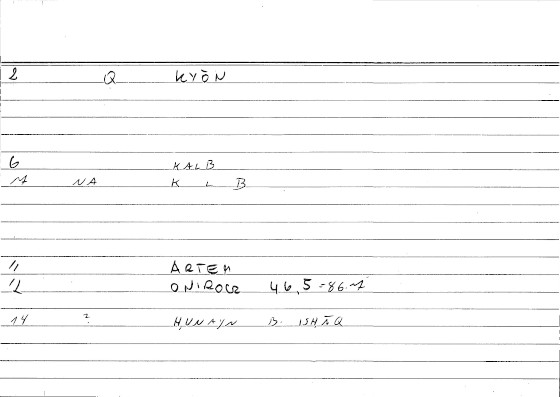 2 Q KYŌN
6 KALB
7 NA K L B
11 ARTEM
12 ONIROCR 46,5 = 86.1
14 ? ḤUNAYN B. ISḤĀQ